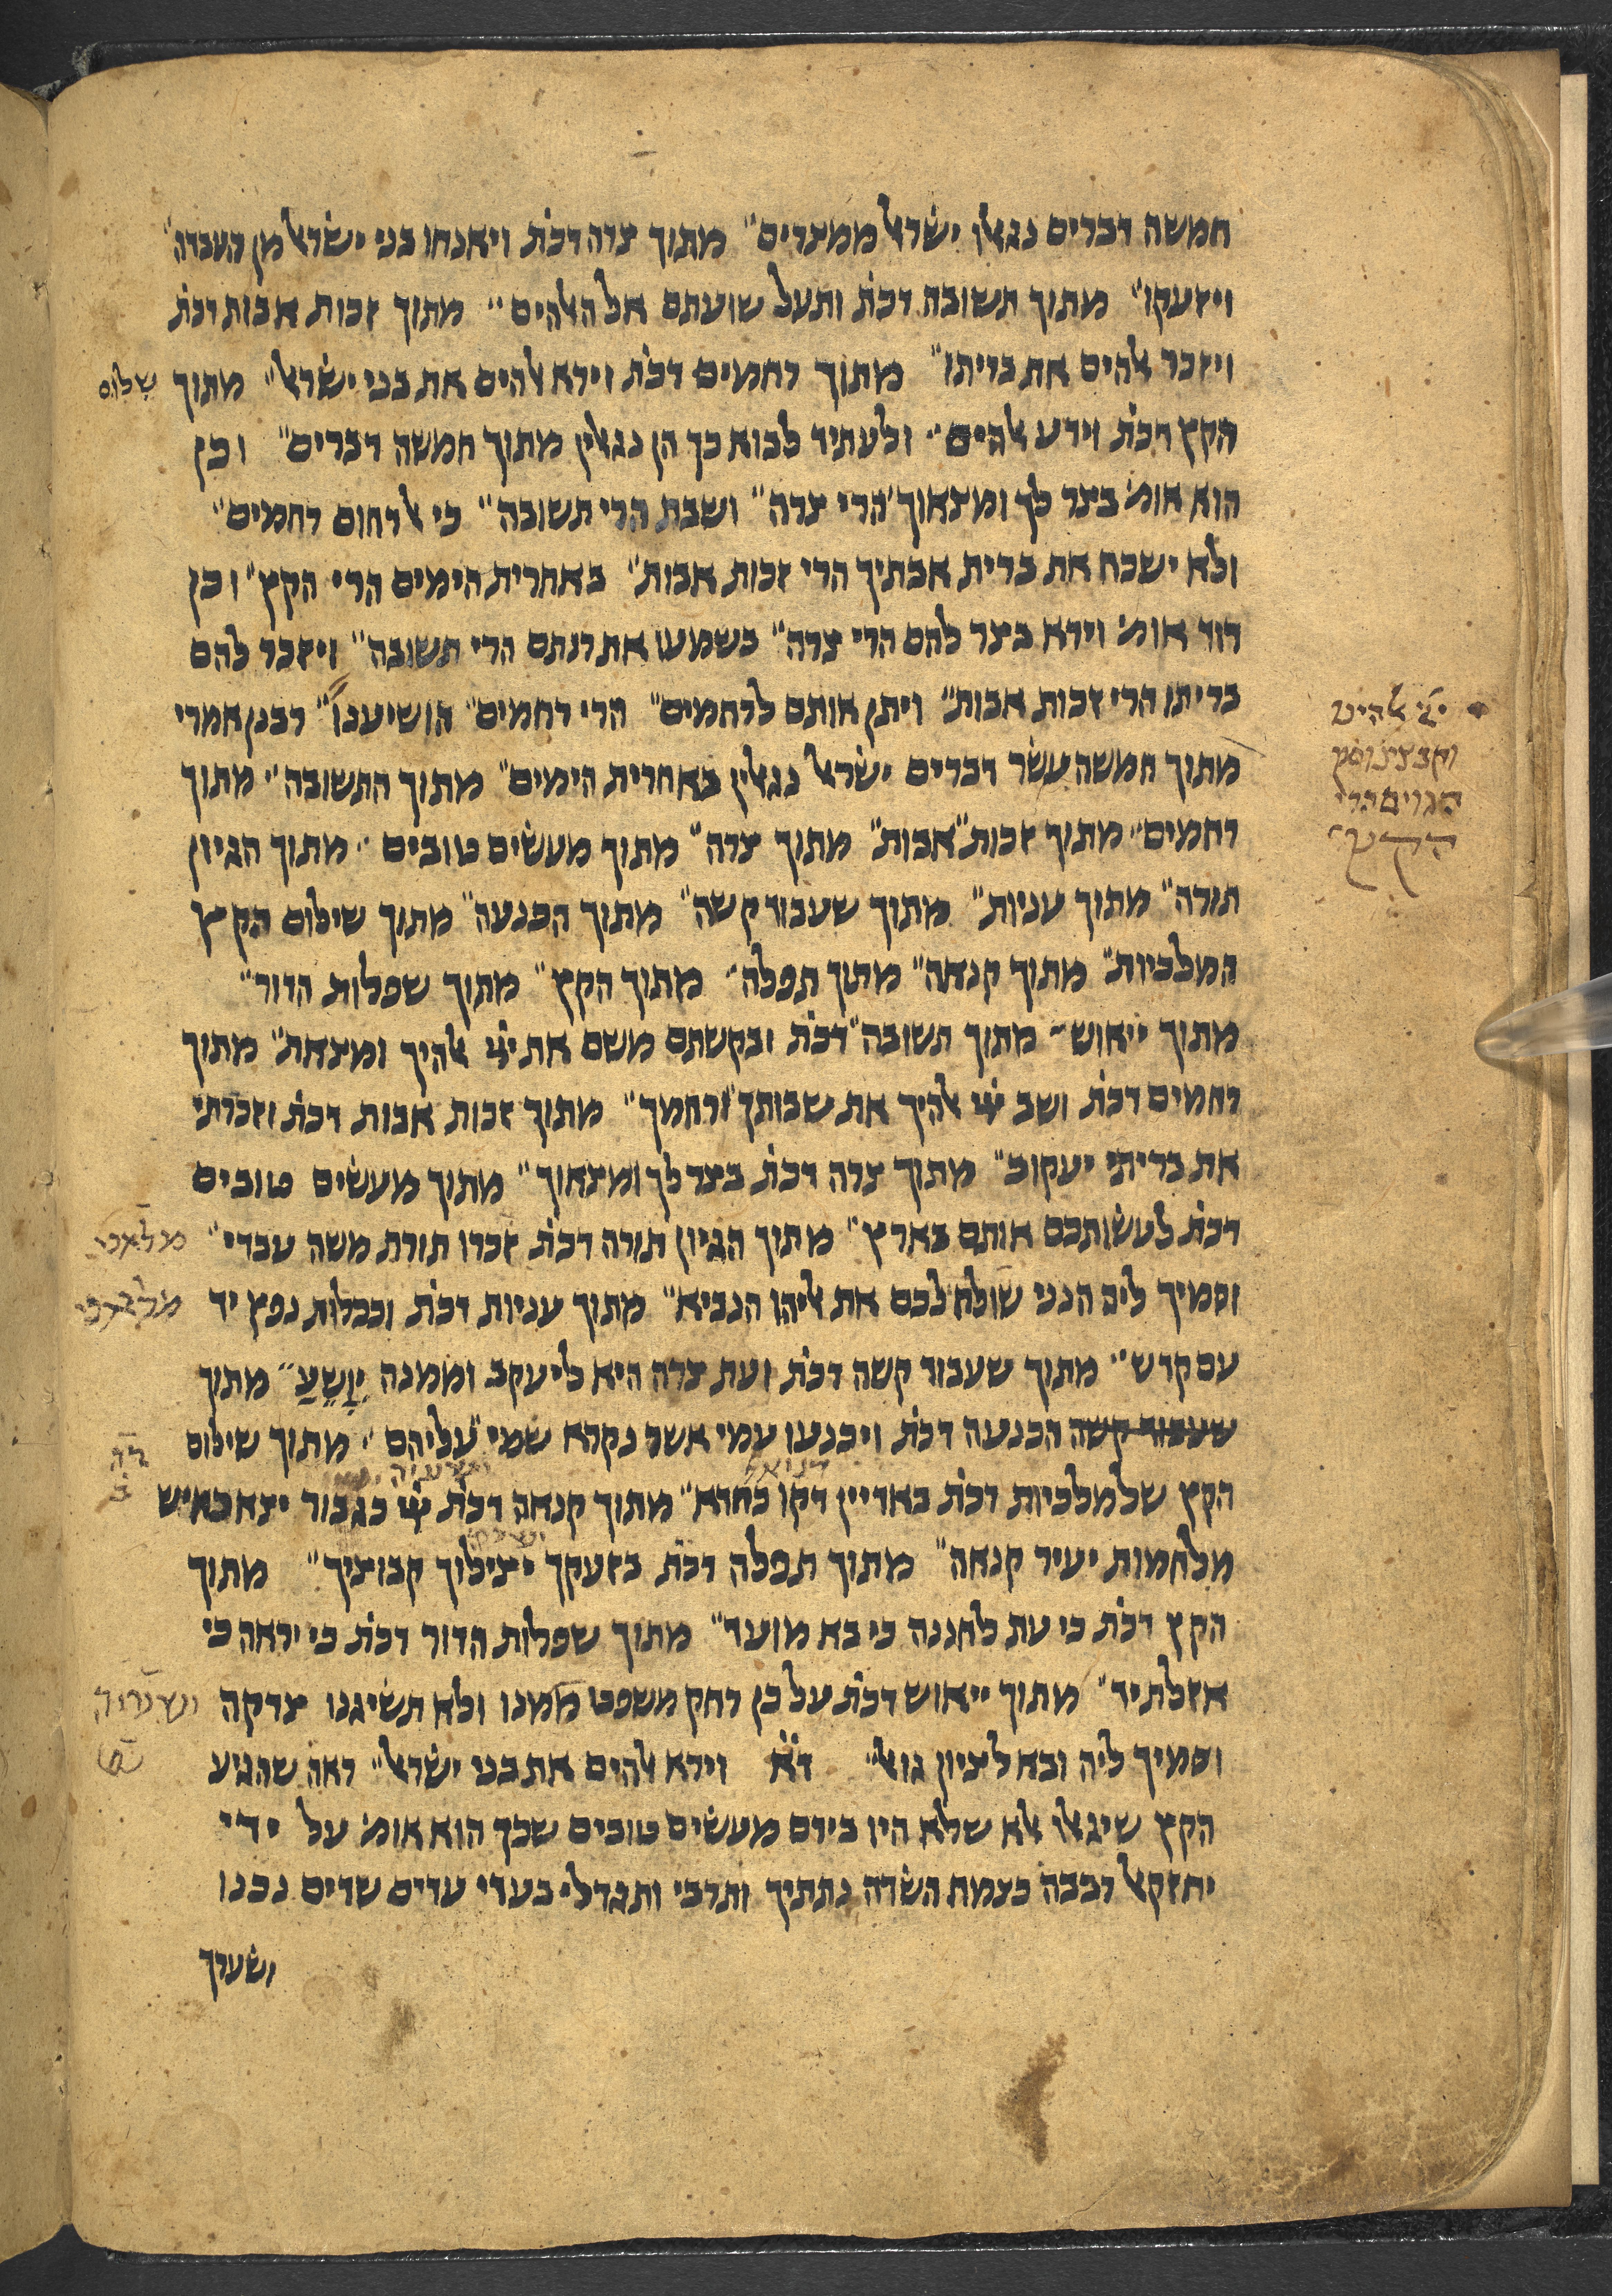 חמשה דברים נגאלו ישראל ממצרים״ מתוך צרה דכת׳ ויאנחו בני ישראל מן העבדה״
ויזעקו״ מתוך תשובה דכת׳ ותעל שועתם אל האלהים״ מתוך זכות אבות דכת׳
ויזכר אלהים את בריתו״ מתוך רחמים דכת׳ וירא אלהים את בני ישראל״ מתוך שלום
הקץ דכת׳ וידע אלהים״ ולעתיד לבוא כך הן נגאלין מתוך חמשה דברים״ וכן
הוא אומ׳ בצר לך ומצאוך הרי צרה״ ושבת הרי תשובה״ כי אל רחום רחמים״
ולא ישכח את ברית אבתיך הרי זכות אבות״ באחרית הימים הרי הקץ״ וכן
דוד אומ׳ וירא בצר להם הרי צרה״ בשמעו את רנתם הרי תשובה״ ויזכר להם
בריתו הרי זכות אבות״ ויתן אותם לרחמים״ הרי רחמים״ הושיענו״ רבנן אמרי
יי׳ אלהינו
וקבצינו מן
הגוים הרי
הקץ׳
מתוך חמשה עשר דברים ישראל נגאלין באחרית הימים״ מתוך התשובה״ מתוך
רחמים״ מתוך זכות״ אבות״ מתוך צרה״ מתוך מעשים טובים״ מתוך הגיון
תורה״ מתוך עניות״ מתוך שעבוד קשה״ מתוך הכנעה״ מתוך שילום הקץ
המלכיות״ מתוך קנאה״ מתוך תפלה״ מתוך הקץ״ מתוך שפלות הדור״
מתוך ייאוש״ מתוך תשובה״ דכת׳ ובקשתם משם את ייי אלהיך ומצאת״ מתוך
רחמים דכת׳ ושב ייי אלהיך את שבותך ורחמך״ מתוך זכות אבות דכת׳ וזכרתי
את בריתי יעקוב״ מתוך צרה דכת׳ בצר לך ומצאוך״ מתוך מעשים טובים
דכת׳ לעשותכם אותם בארץ״ מתוך הגיון תורה דכת׳ זכרו תורת משה עבדי״ מלאכי
וסמיך ליה הנני שולח לכם את אליהו הנביא״ מתוך עניות דכת׳ וככלות נפץ יד
עם קדש״ מתוך שעבוד קשה דכת׳ ועת צרה היא ליעקב וממנה יִוָשֵעַ״ מתוך
שעבוד קשה הכנעה דכת׳ ויכנעו עמי אשר נקרא שמי עליהם״ מתוך שילום
הקץ של מלכיות דכת׳ באדיין דקו כחדא״ מתוך קנאה דכת׳ ייי כגבור יצא כאיש
מלחמות יעיר קנאה״ מתוך תפלה דכת׳ בזעקך יצילוך קבוציך״ מתוך
הקץ דכת׳ כי עת לחננה כי בא מועד״ מתוך שפלות הדור דכת׳ כי יראה כי
אזלת יד״ מתוך ייאוש דכת׳ על כן רחק משפט ממנו ולא תשיגנו צדקה
וסמיך ליה ובא לציון גואל״ ד״א וירא אלהים את בני ישראל״ ראה שהגיע
הקץ שיגאלו אלא שלא היו בידם מעשים טובים שכך הוא אומ׳ על ידי
יחזקאל רבבה כצמח השדה נתתיך ותרבי ותגדלי בעדי עדים שדים נכנו
ושערך